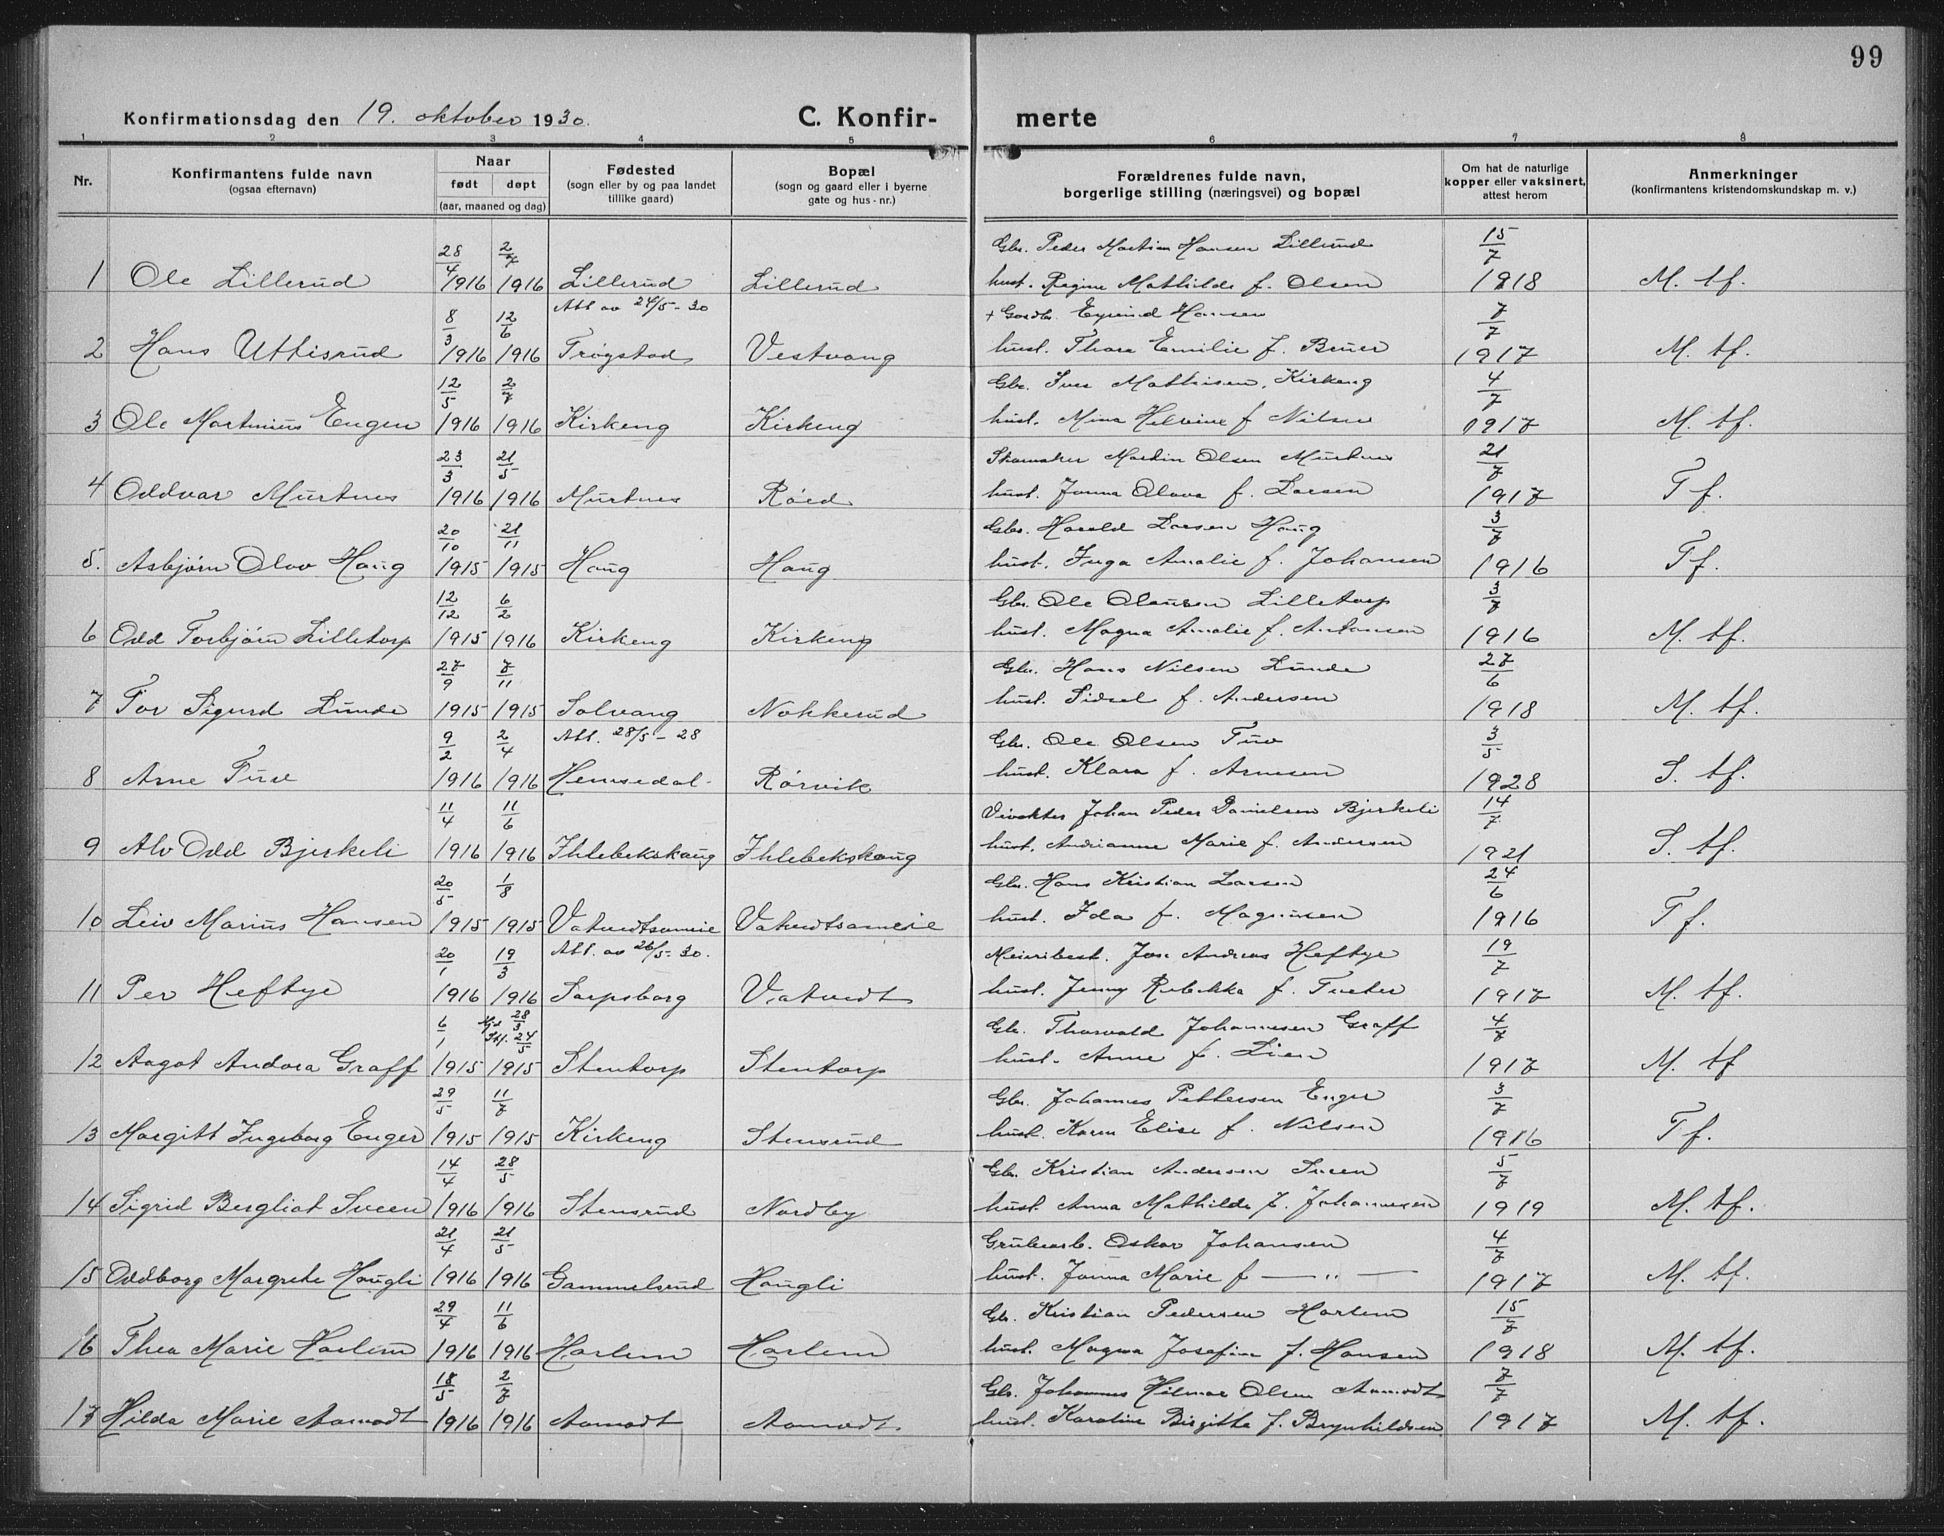 99
Konfirmationsdag den 19. oktober 1930.
C. Konfir- merte
1 2 3 4 5 6 7 8
Nr.
Konfirmantens fulde navn
(ogsaa efternavn)
Naar
født døpt
(aar, maaned og dag)
Fødested
(sogn eller by og paa landet
tillike gaard)
Bopæl
(sogn og gaard eller i byerne
gate og hus-nr.)
Forældrenes fulde navn,
borgerlige stilling (næringsvei) og bopæl
Om hat de naturlige
kopper eller vaksinert,
attest herom
Anmerkninger
(konfirmantens kristendomskundskap m. v.)
28/4 2/7 Gbr. Peder Martian Hansen Lillerud 15/7
1 Ole Lillerud 1916 1916 Lillerud Lillerud hust. Regine Mathilde f. Olsen 1918 M. tf.
8/3 12/6 Att. av 24/5-30 + Gaardbr. Eyvind Hansen 7/7
2 Hans Uttisrud 1916 1916 Trøgstad Vestvang hust. Thora Emilie f. Bruer 1917 M. tf.
12/5 2/7 Gbr. Iver Mathisen, Kirkeng 4/7
3 Ole Martinius Engen 1916 1916 Kirkeng Kirkeng hust. Mina Helvine f Nilsen 1917 M. tf.
23/3 21/5 Skomaker Martin Olsen Murtnes 21/7
4 Oddvar Murtnes 1916 1916 Murtnes Røed hust. Janna Olava f. Larsen 1917 T f.
20/10 21/11 Gbr. Harald Larsen Haug 3/7
5. Asbjørn Olav Haug 1915 1915 Haug Haug hust. Inga Amalie f. Johansen 1916 Tf.
12/12 6/2 Gbr. Ole Olausen Lilletorp 3/7
6 Odd Torbjørn Lilletorp 1915 1916 Kirkeng Kirkeng hust. Magna Amalie f. Antonsen 1916 M. tf.
27/9 7/11 Gbr. Hans Nilsen Lunde 27/6
7 Tor Sigurd Lunde 1915 1915 Solvang Nokkerud hust. Sidsel f. Andersen 1918 M. tf.
9/2 2/4 Att. 28/5-28 Gbr. Ole Olsen Tuv 3/5
8 Arne Tuv 1916 1916 Hemsedal- Rørvik hust. Klara f. Arnesen 1928 S. tf.
11/4 11/6 Johan Peder Danielsen Bjerkeli 14/7
9 Alv Odd Bjerkeli 1916 1916 Ihlebekskaug Ihlebekskaug hust. Andrianne Marie f. Andersen 1921 S. tf.
20/5 1/8 Gbr. Hans Kristian Larsen 24/6
10 Leiv Marius Hansen 1915 1915 Vatvedtsameie Vatvedtsameie hust. Ida f. Magnussen 1916 T f.
20/1 19/3 Att. av 26/5-30. Meieribest. Jon Andreas Heftye 19/7
11 Per Heftye 1916 1916 Sarpsborg Vatvedt hust. Jenny Rebekka f. Tveter 1917 M. tf.
6/1 Hjd 28/3 Stf. 24/5 Gbr. Thorvald Johannesen Graff 4/7
12 Aagot Andora Graff 1915 1915 Stentorp Stentorp hust. Anne f. Lien 1917 M. tf
29/5 11/7 Gbr. Johannes Pettersen Enger 3/7
13 Margitt Ingeborg Enger 1915 1915 Kirkeng Stensrud hust. Karen Elise f. Nilsen 1916 T f.
14/4 28/5 Gbr. Kristian Andersen Sveen 5/7
14 Sigrid Bergliot Sveen 1916 1916 Stensrud Nordby hust. Anna Mathilde f. Johannesen 1919 M. tf.
21/4 21/5 Grubearb. Oskar Johansen 4/7
15 Oddborg Margrete Haugli 1916 1916 Gammelsrud Haugli hust. Janna Marie f — „ — 1917 M. tf.
29/4 11/6 Gbr. Kristian Pedersen Harlem 15/7
16 Thea Marie Harlem 1916 1916 Harlem Harlem hust. Magna Josefine f. Hansen 1918 M. tf.
18/5 2/7 Gbr. Johannes Hilmar Olsen Aamodt 7/7
17 Hilda Marie Aamodt 1916 1916 Aamodt Aamodt. hust. Karoline Birgitte f. Brynhildsen 1917 M. tf.